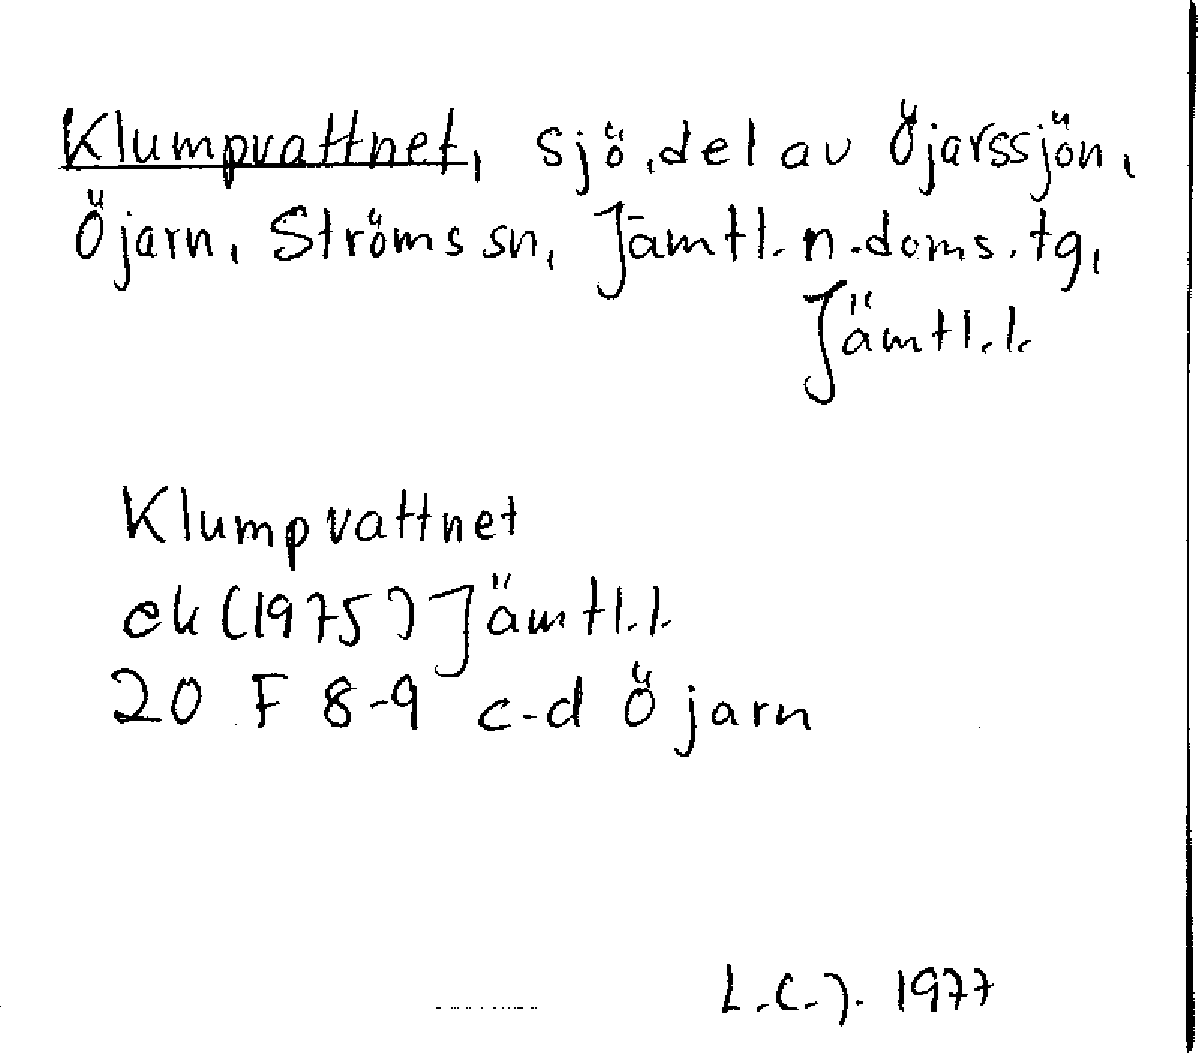 Klumpvattnet, sjö, del av Öjarssjön,
Öjarn, Ströms sn, Jämtl. n. doms. tg,
Jämtl. l.
Klumpvattnet
ek (1975) Jämtl. l.
20 F 8-9 c-d Öjarn
L.C.J. 1977